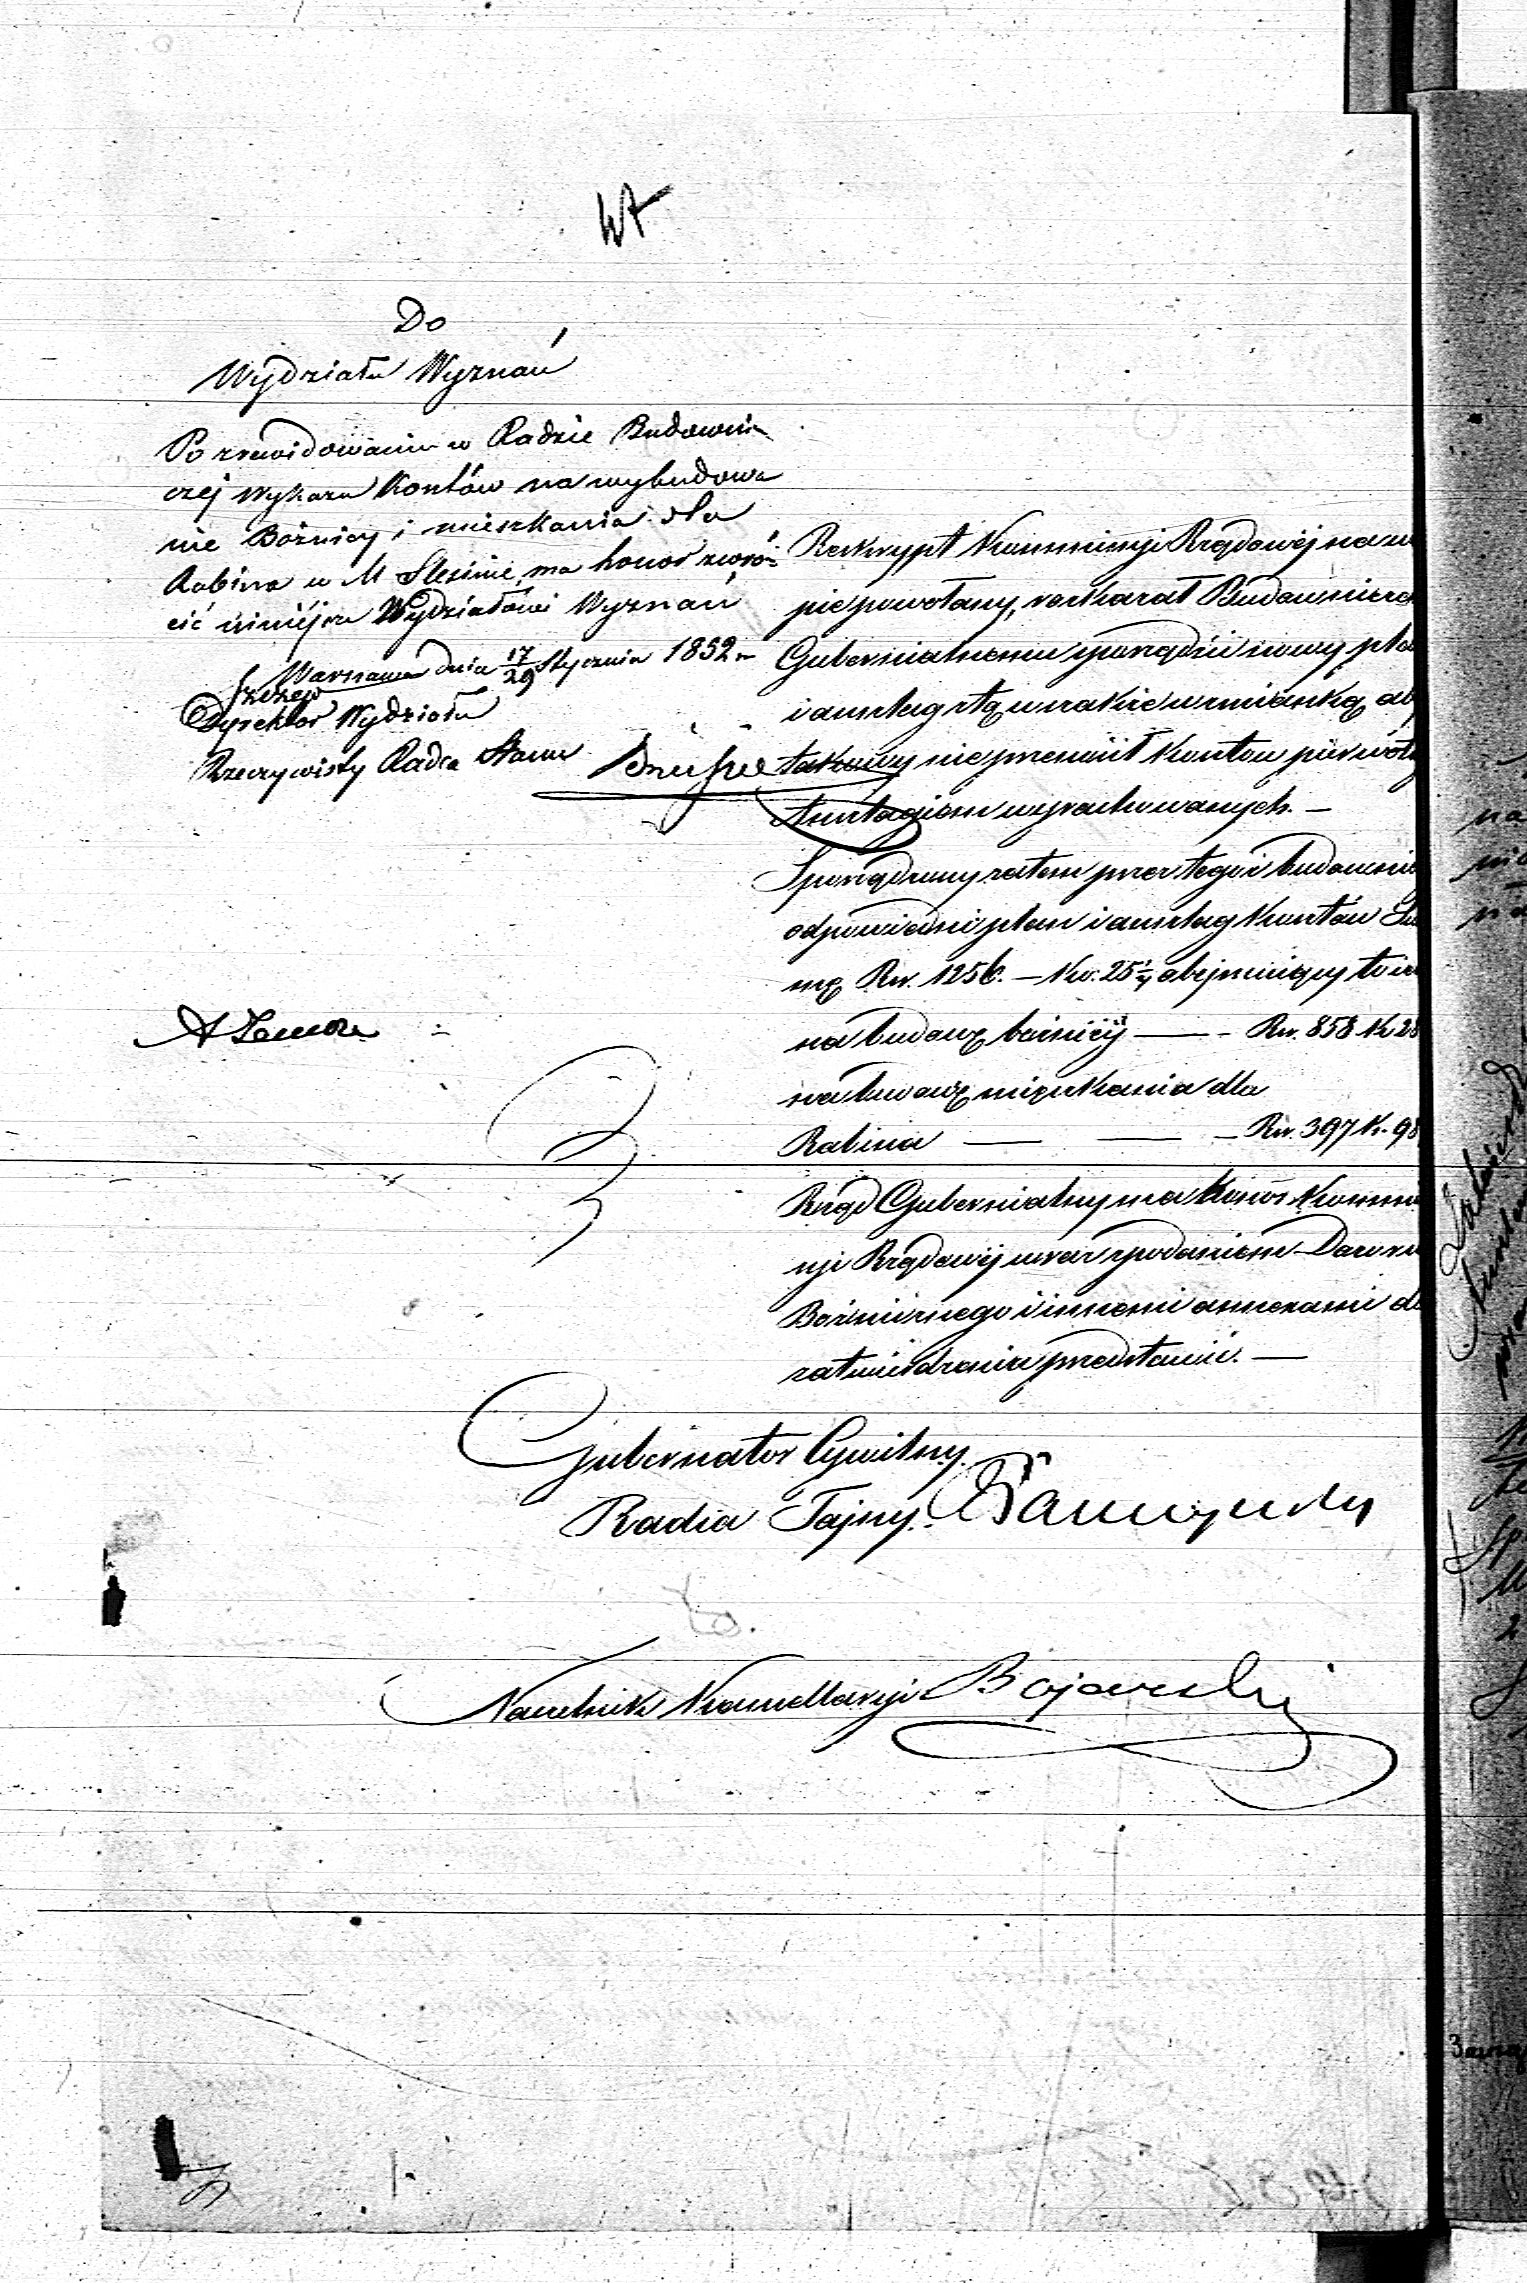 Do
Wydziału Wyznań
Po zrewidowaniu w Radzie Budowni
czej wykazu Kosztów na wybudowa
nie Bóżnicy i mieszkania dla
Rabina w M Slesinie, ma honor zwró
cić niniejsze Wydziałowi Wyznań
Warszawa dnia 17/29 Stycznia 1852 r
Dyrektor Wydziału
Rzeczywisty Radca Stanu
Reskrypt Kommissyi Rządowéj na w
pie powołany, rozkazał Budownicze
Gubernialnemu sporządzić nowy pla
i anszlag z tą wszakże wzmianką, ab
takowy nie przenosił Kosztów pierwotn
Anszlagiem wyrachowanych. —
Sporządzony zatem przez tegoż budownic
odpowiedni plan i anszlag Kosztów Su
mę Rsr. 1256. — Ko. 25½ obejmujący to iest
na budowę bożnicy — Rsr. 858 K 28
na budowę mieszkania dla
Rabina — — Rsr. 397 K. 98
Rząd Gubernialny ma honor Kommis
syi Rządowéj wraz z podaniem Dozoru
Bożniczego i innemi annexami do
zatwierdzenia przedstawić. —
Gubernator Cywilny
Radca Tajny.
Naczelnik Kancellaryi Bojarski